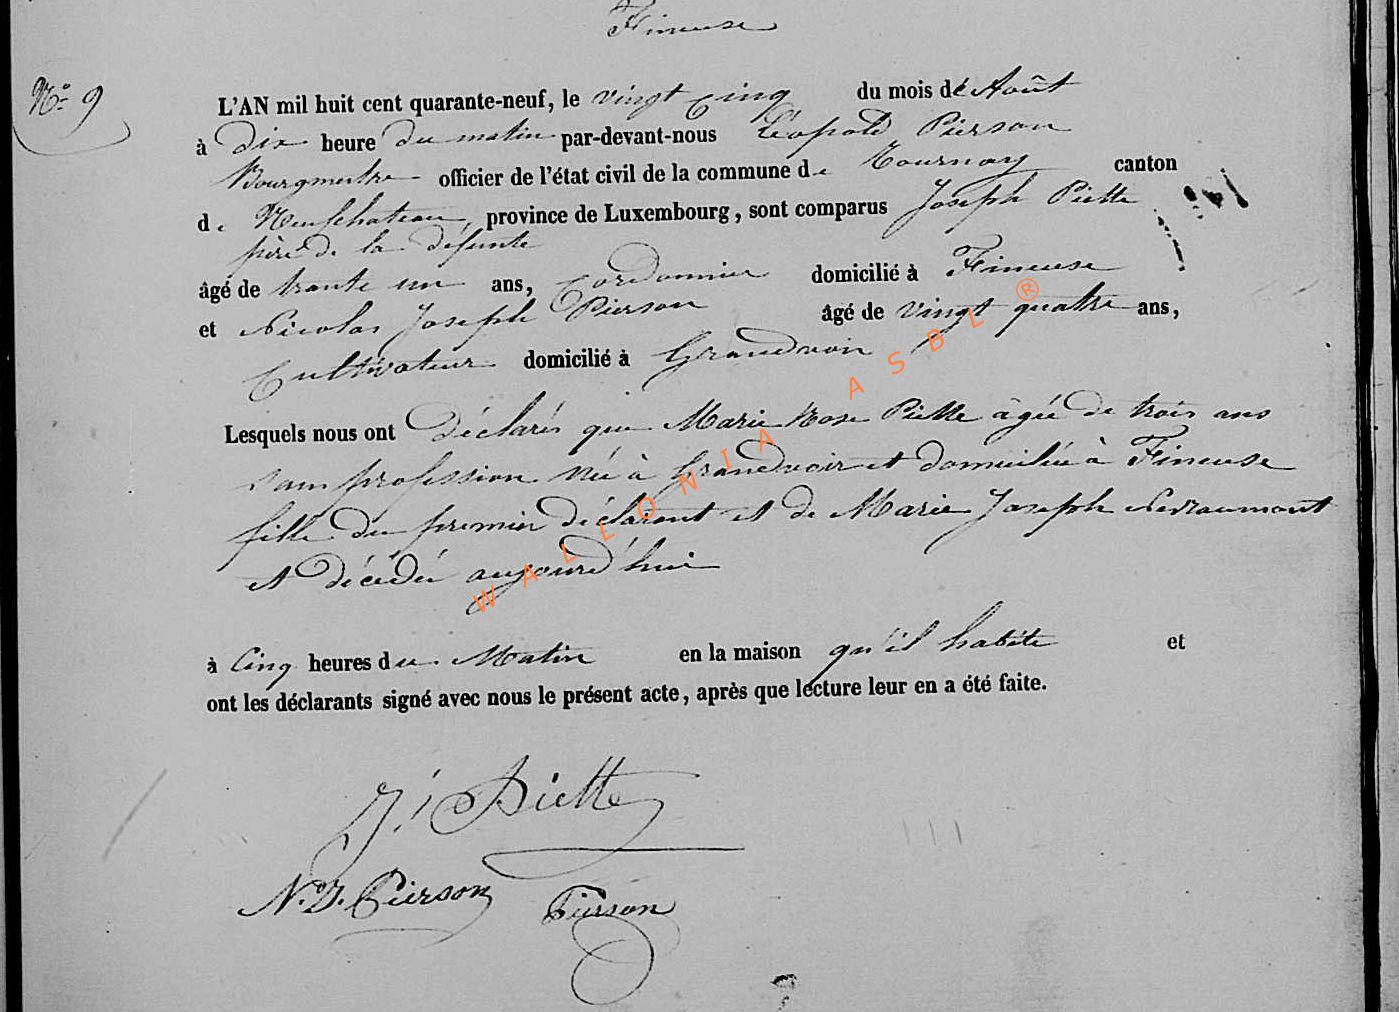 Fineuse
N° 9
L'AN mil huit cent quarante-neuf, le vingt cinq du mois de Août
à dix heure du matin par-devant-nous Léopold Pierson
Bourgmestre officier de l'état civil de la commune de Tournay canton
de Neufchateau, province de Luxembourg, sont comparus Joseph Piette
père de la défunte
âgé de trente un ans, Cordonnier domicilié à Fineuse
et Nicolas Joseph Pierson âgé de vingt quatre ans,
Cultivateur domicilié à Grandvoir
Lesquels nous ont déclarés que Marie Rose Piette âgée de trois ans
sans profession née à Grandvoir et domiciliée à Fineuse
fille du premier déclarant et de Marie Joseph
et décédée aujourd'hui
à Cinq heures du Matin en la maison qu'il habite et
ont les déclarants signé avec nous le présent acte, après que lecture leur en a été faite.
J. Piette
N. J. Pierson Pierson
WALLONIA ASBL ®